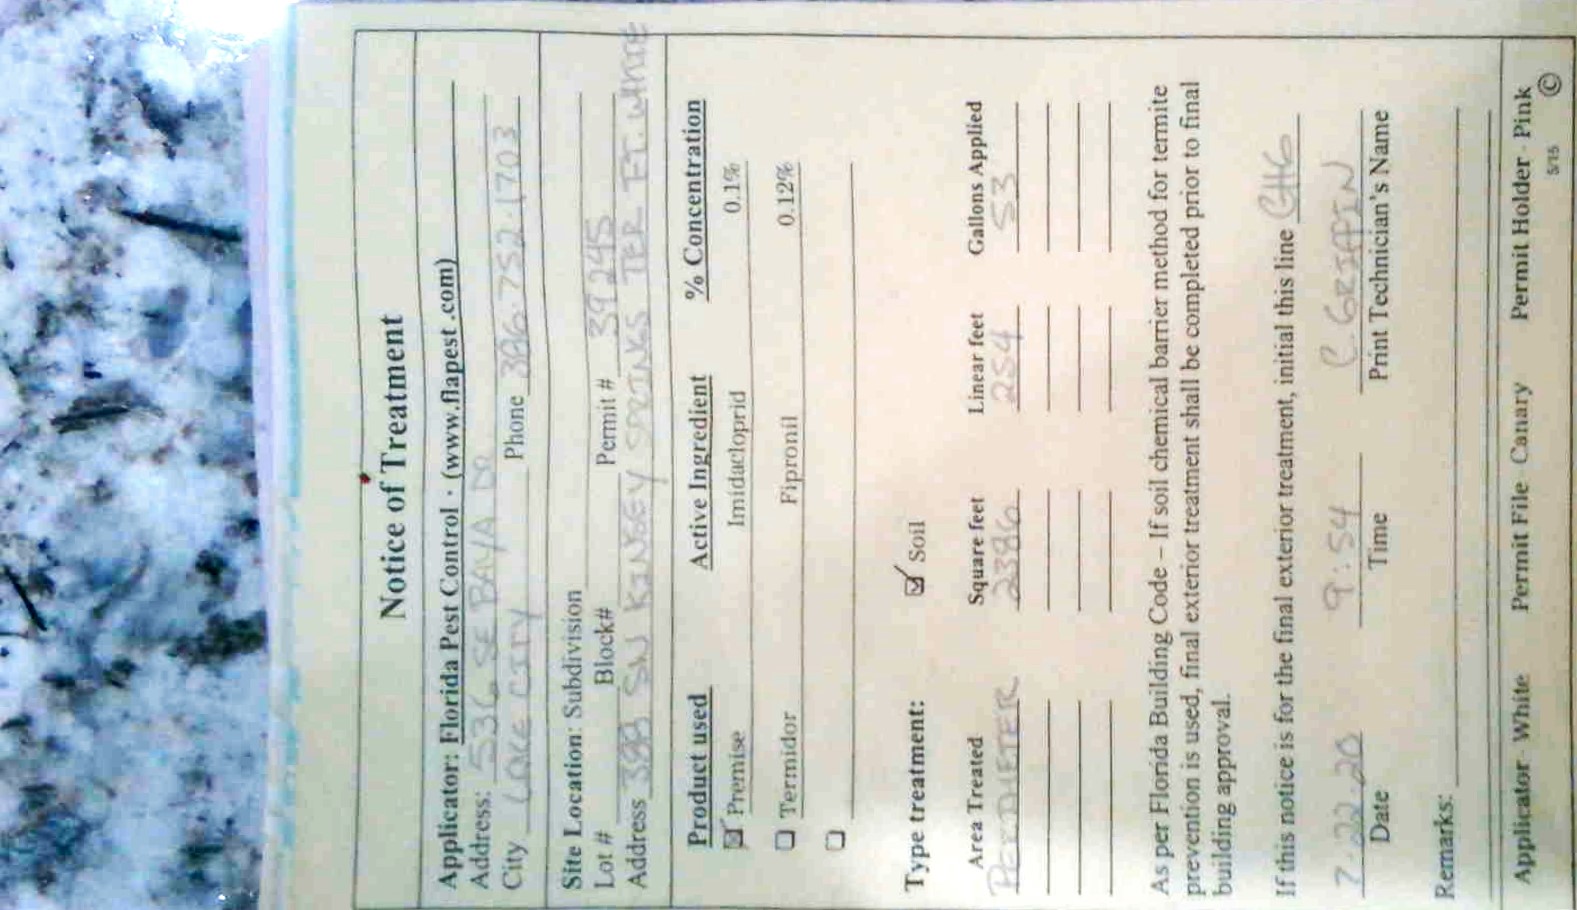 Notice of Treatment
Applicator: Florida Pest Control · (www.flapest.com)
Address: 536 SE BAYA DR
City LAKE CITY Phone 386-752-1703
Site Location: Subdivision
Lot # Block# Permit # 39245
Address 388 SW KINSEY SPRINKS TER FT. WHITE
Product used Active Ingredient % Concentration
☑ Premise Imidacloprid 0.1%
☐ Termidor Fipronil 0.12%
☐
Type treatment: ☑ Soil
Area Treated Square feet Linear feet Gallons Applied
PERIMETER 2386 254 53
As per Florida Building Code – If soil chemical barrier method for termite
prevention is used, final exterior treatment shall be completed prior to final
building approval.
If this notice is for the final exterior treatment, initial this line CHG
7-22-20 9:54 C. GRIFFIN
Date Time Print Technician's Name
Remarks:
Applicator - White Permit File Canary Permit Holder - Pink
5/15 ©